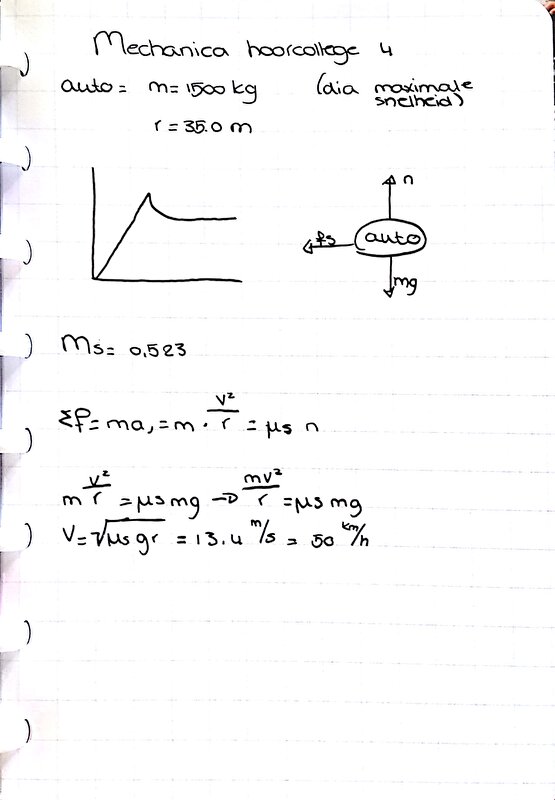 Mechanica hoorcollege 4
auto = m = 1500 kg (dia maximale snelheid)
r = 35.0 m
n
fs auto
mg
Ms = 0,523
Σf = ma, = m · v²/r = μs n
m v²/r = μs mg → mv²/r = μs mg
V = √μs gr = 13.4 m/s = 50 km/h